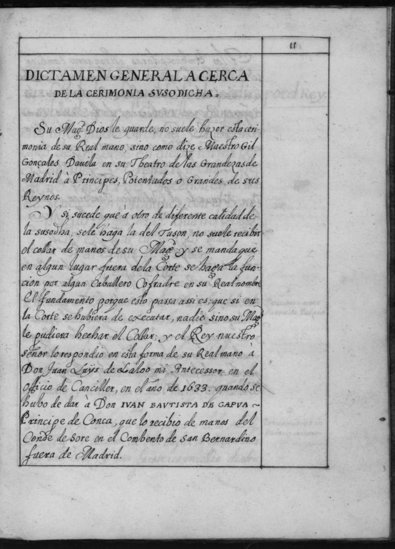 11
DICTAMEN GENERAL ACERCA
DE LA CERIMONIA SUSODICHA.
Su Magd. Dios le guarde, no suele hazer esta ceri-
monia de su Real mano, sino como dize Maestro Gil
Gonçales Dauila en su Theatro de las Grandezas de
Madrid à Principes, Potentados o Grandes, de sus
Reynos.
Y si sucede que a otro de diferente calidad de
la susodha, se le haga la del Tuson, no suele recibir
el collar de manos de su Magd. y se manda que
en algun lugar fuera de la Corte se haga la fun-
cion por algun Caballero Cofradre en su Real nombre
El fundamento porque esto passa assi es: que si en
la Corte se hubiera de executar, nadie sino su Magd.
le pudiera hechar el Collar: y el Rey nuestro
señor lo respondio en esta forma de su Real mano a
Don Juan Luÿs de Laloo mi Antecessor en el
Officio de Canciller, en el año de 1633. quando se
hubo de dar à DON IUAN BAUTISTA DE CAPUA
Principe de Conca, que lo recibio de manos del
Conde de Sore en el Combento de San Bernardino
fuera de Madrid.